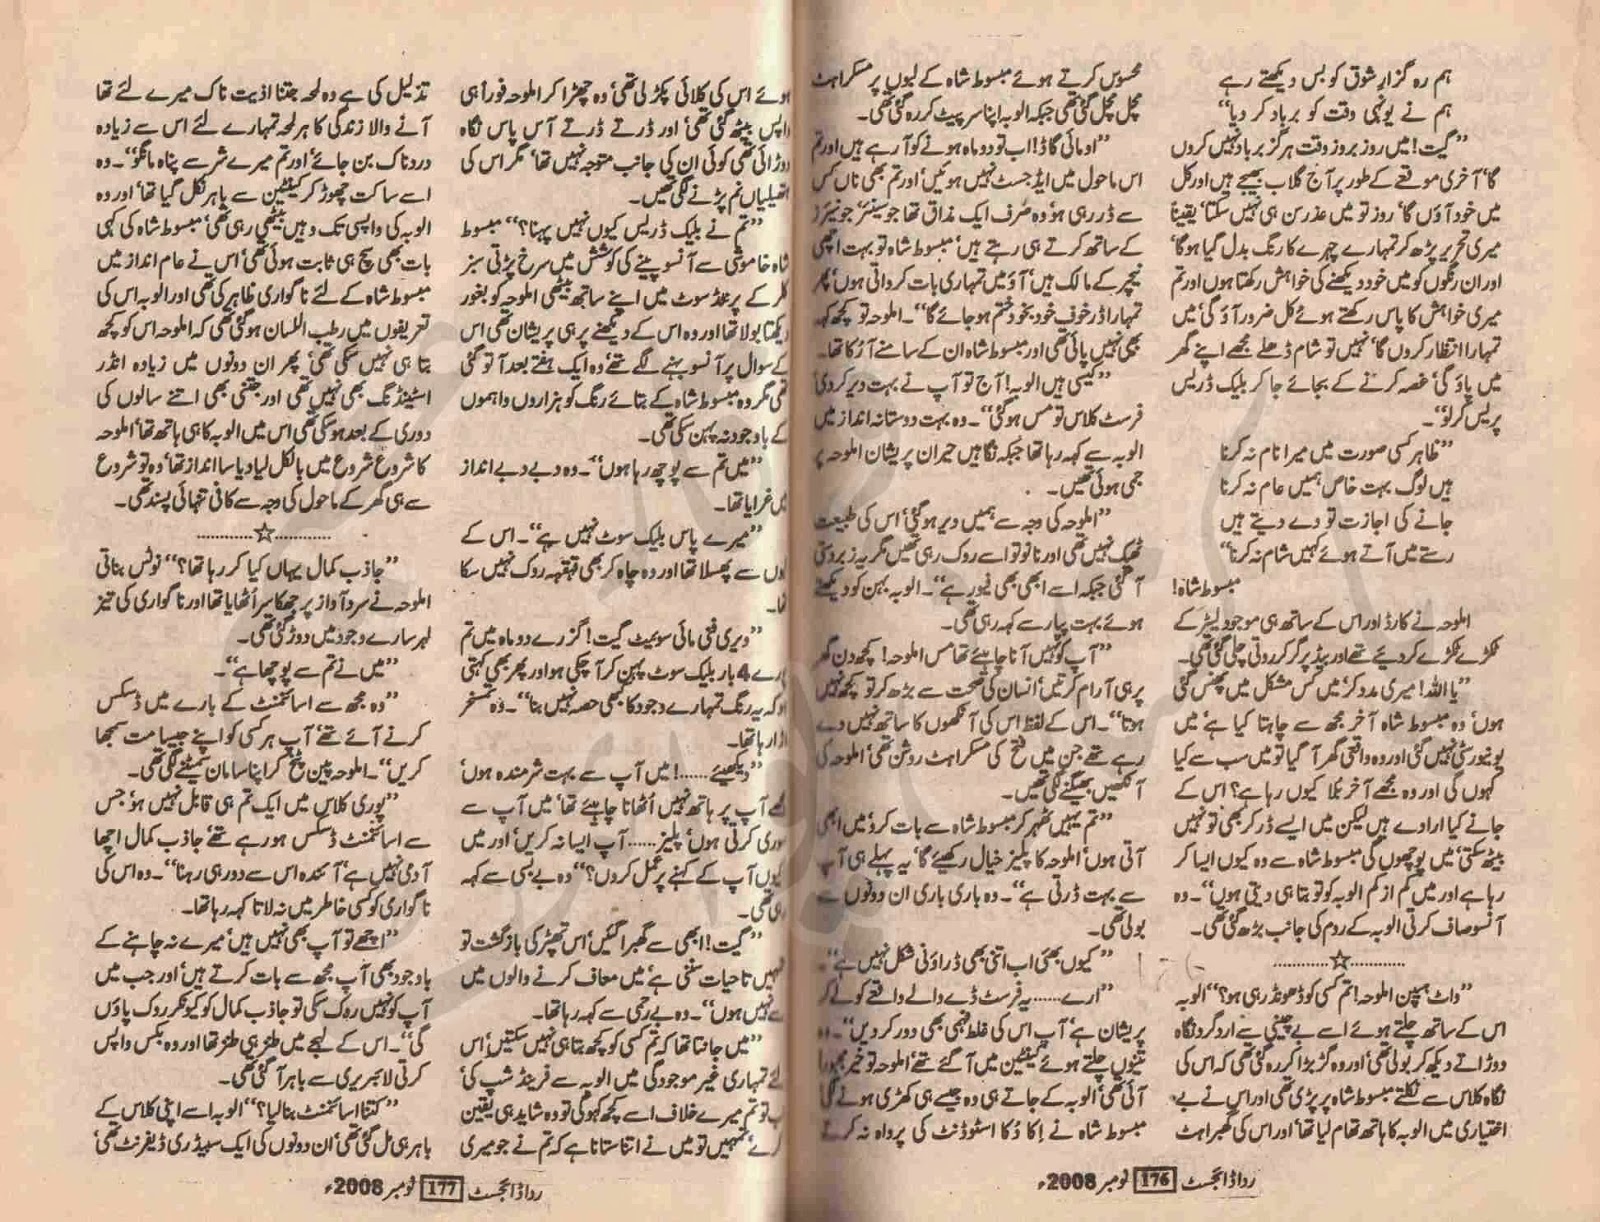 ہم رہ گزارِ شوق کو بس دیکھتے رہے
ہم نے یونہی وقت کو برباد کر دیا‘‘
’’گیت! میں روز بروز وقت ہرگز برباد نہیں کروں
گا‘ آخری موقعے کے طور پر آج گلاب بھیجے ہیں اور کل
میں خود آؤں گا‘ روز تو میں عذر سن ہی نہیں سکتا‘ یقیناً
میری تحریر پڑھ کر تمہارے چہرے کا رنگ بدل گیا ہوگا‘
اور ان رنگوں کو میں خود دیکھنے کی خواہش رکھتا ہوں اور تم
میری خواہش کا پاس رکھتے ہوئے کل ضرور آؤ گی‘ میں
تمہارا انتظار کروں گا‘ نہیں تو شام ڈھلے مجھے اپنے گھر
میں پاؤ گی‘ غصہ کرنے کے بجائے جا کر بلیک ڈریس
پریس کرلو‘‘۔
’’ظاہر کسی صورت میں میرا نام نہ کرنا
ہیں لوگ بہت خاص ہمیں عام نہ کرنا
جانے کی اجازت تو دے دیتے ہیں
رستے میں آتے ہوئے کہیں شام نہ کرنا‘‘
مبسوط شاہ!
املوحہ نے کارڈ اور اس کے ساتھ ہی موجود لیٹر کے
ٹکڑے ٹکڑے کر دیئے تھے اور بیڈ پر گر کر روتی چلی گئی تھی۔
’’یا اللہ! میری مدد کر‘ میں کس مشکل میں پھنس گئی
ہوں‘ وہ مبسوط شاہ آخر مجھ سے چاہتا کیا ہے‘ میں
یونیورسٹی نہیں گئی اور وہ واقعی گھر آ گیا تو میں سب سے کیا
کہوں گی اور وہ مجھے آخر بلا کیوں رہا ہے؟ اس کے
جانے کیا ارادے ہیں لیکن میں ایسے ڈر کر بھی تو نہیں
بیٹھ سکتی‘ میں پوچھوں گی مبسوط شاہ سے وہ کیوں ایسا کر
رہا ہے اور میں کم از کم الوبہ کو تو بتا ہی دیتی ہوں‘‘۔ وہ
آنسو صاف کرتی الوبہ کے روم کی جانب بڑھ گئی تھی۔
............☆............
’’واٹ ہیپن املوحہ! تم کسی کو ڈھونڈ رہی ہو؟‘‘ الوبہ
اس کے ساتھ چلتے ہوئے اسے بے چینی سے ارد گرد نگاہ
دوڑاتے دیکھ کر بولی تھی‘ اور وہ گڑبڑا کر رہ گئی تھی کہ اس کی
نگاہ کلاس سے نکلتے مبسوط شاہ پر پڑی تھی اور اس نے بے
اختیاری میں الوبہ کا ہاتھ تھام لیا تھا‘ اور اس کی گھبراہٹ
محسوس کرتے ہوئے مبسوط شاہ کے لبوں پر مسکراہٹ
مچل مچل گئی تھی جبکہ الوبہ اپنا سر پیٹ کر رہ گئی تھی۔
’’او مائی گاڈ! اب تو دو ماہ ہونے کو آ رہے ہیں اور تم
اس ماحول میں ایڈجسٹ نہیں ہوئیں‘ اور تم بھی ناں کس
سے ڈر رہی ہو‘ وہ صرف ایک مذاق تھا جو سینئر‘ جونیئرز
کے ساتھ کرتے ہی رہتے ہیں‘ مبسوط شاہ تو بہت اچھی
نیچر کے مالک ہیں‘ آؤ میں تمہاری بات کرواتی ہوں‘ پھر
تمہارا ڈر خوف خود بخود ختم ہو جائے گا‘‘۔ املوحہ تو کچھ کہہ
بھی نہیں پائی تھی اور مبسوط شاہ ان کے سامنے آ رُکا تھا۔
’’کیسی ہیں الوبہ! آج تو آپ نے بہت دیر کر دی‘
فرسٹ کلاس تو مس ہو گئی‘‘۔ وہ بہت دوستانہ انداز میں
الوبہ سے کہہ رہا تھا جبکہ نگاہیں حیران پریشان املوحہ پر
جمی ہوئی تھیں۔
’’املوحہ کی وجہ سے ہمیں دیر ہو گئی‘ اس کی طبیعت
ٹھیک نہیں تھی اور نانو تو اسے روک رہی تھیں مگر یہ زبردستی
آ گئی جبکہ اسے ابھی بھی فیور ہے‘‘۔ الوبہ بہن کو دیکھتے
ہوئے بہت پیار سے کہہ رہی تھی۔
’’آپ کو نہیں آنا چاہئے تھا مس املوحہ! کچھ دن گھر
پر ہی آرام کرتیں‘ انسان کی صحت سے بڑھ کر تو کچھ نہیں
ہوتا‘‘۔ اس کے لفظ اس کی آنکھوں کا ساتھ نہیں دے
رہے تھے جن میں فتح کی مسکراہٹ روشن تھی‘ املوحہ کی
آنکھیں بھیگنے لگی تھیں۔
’’تم یہیں ٹھہر کر مبسوط شاہ سے بات کرو‘ میں ابھی
آتی ہوں‘ املوحہ کا پلیز خیال رکھیئے گا‘ یہ پہلے ہی آپ
سے بہت ڈرتی ہے‘‘۔ وہ باری باری ان دونوں سے
بولی تھی۔
’’کیوں بھئی اب اتنی بھی ڈراؤنی شکل نہیں ہے‘‘۔
’’ارے...... یہ فرسٹ ڈے والے واقعے کو لے کر
پریشان ہے‘ آپ اس کی غلط فہمی بھی دور کر دیں‘‘۔ وہ
تینوں چلتے ہوئے کینٹین میں آ گئے تھے‘ املوحہ تو خیر مجبوراً
آئی تھی‘ الوبہ کے جاتے ہی وہ جیسے ہی کھڑی ہونے لگی
مبسوط شاہ نے اِکا دُکا اسٹوڈنٹ کی پرواہ نہ کرتے
رداڈائجسٹ 176 نومبر 2008ء
ہوئے اس کی کلائی پکڑ لی تھی‘ وہ چھڑا کر املوحہ فوراً ہی
واپس بیٹھ گئی تھی‘ اور ڈرتے ڈرتے آس پاس نگاہ
دوڑائی تھی کوئی ان کی جانب متوجہ نہیں تھا‘ مگر اس کی
ہتھیلیاں نم پڑنے لگی تھیں۔
’’تم نے بلیک ڈریس کیوں نہیں پہنا؟‘‘ مبسوط
شاہ خاموشی سے آنسو پینے کی کوشش میں سرخ پڑتی سبز
کلر کے پرنٹڈ سوٹ میں اپنے ساتھ بیٹھی املوحہ کو بغور
دیکھتا بولا تھا اور وہ اس کے دیکھنے پر ہی پریشان تھی اس
کے سوال پر آنسو بہنے لگے تھے‘ وہ ایک ہفتے بعد آ تو گئی
تھی مگر وہ مبسوط شاہ کے بتائے رنگ کو ہزاروں واہموں
کے باوجود نہ پہن سکی تھی۔
’’میں تم سے پوچھ رہا ہوں‘‘۔ وہ دبے دبے انداز
میں غرایا تھا۔
’’میرے پاس بلیک سوٹ نہیں ہے‘‘۔ اس کے
لبوں سے پھسلا تھا اور وہ چاہ کر بھی قہقہہ روک نہیں سکا
تھا۔
’’ویری فنی مائی سویٹ گیت! گزرے دو ماہ میں تم
پورے 4 بار بلیک سوٹ پہن کر آ چکی ہو اور پھر بھی کہتی
ہو کہ یہ رنگ تمہارے وجود کا بھی حصہ نہیں بنا‘‘۔ وہ تمسخر
اڑا رہا تھا۔
’’دیکھیئے......! میں آپ سے بہت شرمندہ ہوں‘
مجھے آپ پر ہاتھ نہیں اُٹھانا چاہیئے تھا‘ میں آپ سے
سوری کرتی ہوں‘ پلیز...... آپ ایسا نہ کریں‘ اور میں
کیوں آپ کے کہنے پر عمل کروں؟‘‘ وہ بے بسی سے کہہ
رہی تھی۔
’’گیت! ابھی سے گھبرا گئیں‘ اس تھپڑ کی بازگشت تو
تمہیں تاحیات سننی ہے‘ میں معاف کرنے والوں میں
سے نہیں ہوں‘‘۔ وہ بے رحمی سے کہہ رہا تھا۔
’’میں جانتا تھا کہ تم کسی کو کچھ بتا ہی نہیں سکتیں‘ اس
لئے تمہاری غیر موجودگی میں الوبہ سے فرینڈ شپ کی‘
اب تو تم میرے خلاف اسے کچھ کہو گی تو وہ شاید ہی یقین
کرے‘ تمہیں تو میں نے اتنا ستانا ہے کہ تم نے جو میری
تذلیل کی ہے وہ لمحہ جتنا اذیت ناک میرے لئے تھا
آنے والا زندگی کا ہر لمحہ تمہارے لئے اس سے زیادہ
دردناک بن جائے‘ اور تم میرے شر سے پناہ مانگو‘‘۔ وہ
اسے ساکت چھوڑ کر کینٹین سے باہر نکل گیا تھا‘ اور وہ
الوبہ کی واپسی تک وہیں بیٹھی رہی تھی‘ مبسوط شاہ کی کہی
بات بھی سچ ہی ثابت ہوئی تھی‘ اس نے عام انداز میں
مبسوط شاہ کے لئے ناگواری ظاہر کی تھی اور الوبہ اس کی
تعریفوں میں رطب اللسان ہو گئی تھی کہ املوحہ اس کو کچھ
بتا ہی نہیں سکی تھی‘ پھر ان دونوں میں زیادہ انڈر
اسٹینڈنگ بھی نہیں تھی اور جتنی بھی اتنے سالوں کی
دوری کے بعد ہو سکی تھی اس میں الوبہ کا ہی ہاتھ تھا‘ املوحہ
کا شروع شروع میں بالکل لیا دیا سا انداز تھا‘ وہ تو شروع
سے ہی گھر کے ماحول کی وجہ سے کافی تنہائی پسند تھی۔
............☆............
’’جاذب کمال یہاں کیا کر رہا تھا؟‘‘ نوٹس بناتی
املوحہ نے سرد آواز پر جھکا سر اُٹھایا تھا اور ناگواری کی تیز
لہر سارے وجود میں دوڑ گئی تھی۔
’’میں نے تم سے پوچھا ہے‘‘۔
’’وہ مجھ سے اسائنمنٹ کے بارے میں ڈسکس
کرنے آئے تھے‘ آپ ہر کسی کو اپنے جیسا مت سمجھا
کریں‘‘۔ املوحہ پین پٹخ کر اپنا سامان سمیٹنے لگی تھی۔
’’پوری کلاس میں ایک تم ہی قابل نہیں ہو‘ جس
سے اسائنمنٹ ڈسکس ہو رہے تھے‘ جاذب کمال اچھا
آدمی نہیں ہے‘ آئندہ اس سے دور ہی رہنا‘‘۔ وہ اس کی
ناگواری کو کسی خاطر میں نہ لاتا کہہ رہا تھا۔
’’اچھے تو آپ بھی نہیں ہیں‘ میرے نہ چاہنے کے
باوجود بھی آپ مجھ سے بات کرتے ہیں‘ اور جب میں
آپ کو نہیں روک سکی تو جاذب کمال کو کیونکر روک پاؤں
گی‘‘۔ اس کے لہجے میں طنز ہی طنز تھا اور وہ بکس واپس
کرتی لائبریری سے باہر آ گئی تھی۔
’’کتنا اسائنمنٹ بنا لیا؟‘‘ الوبہ اسے اپنی کلاس کے
باہر ہی مل گئی تھی‘ ان دونوں کی ایک سبجیکٹ ڈیفرنٹ تھی‘
رداڈائجسٹ 177 نومبر 2008ء